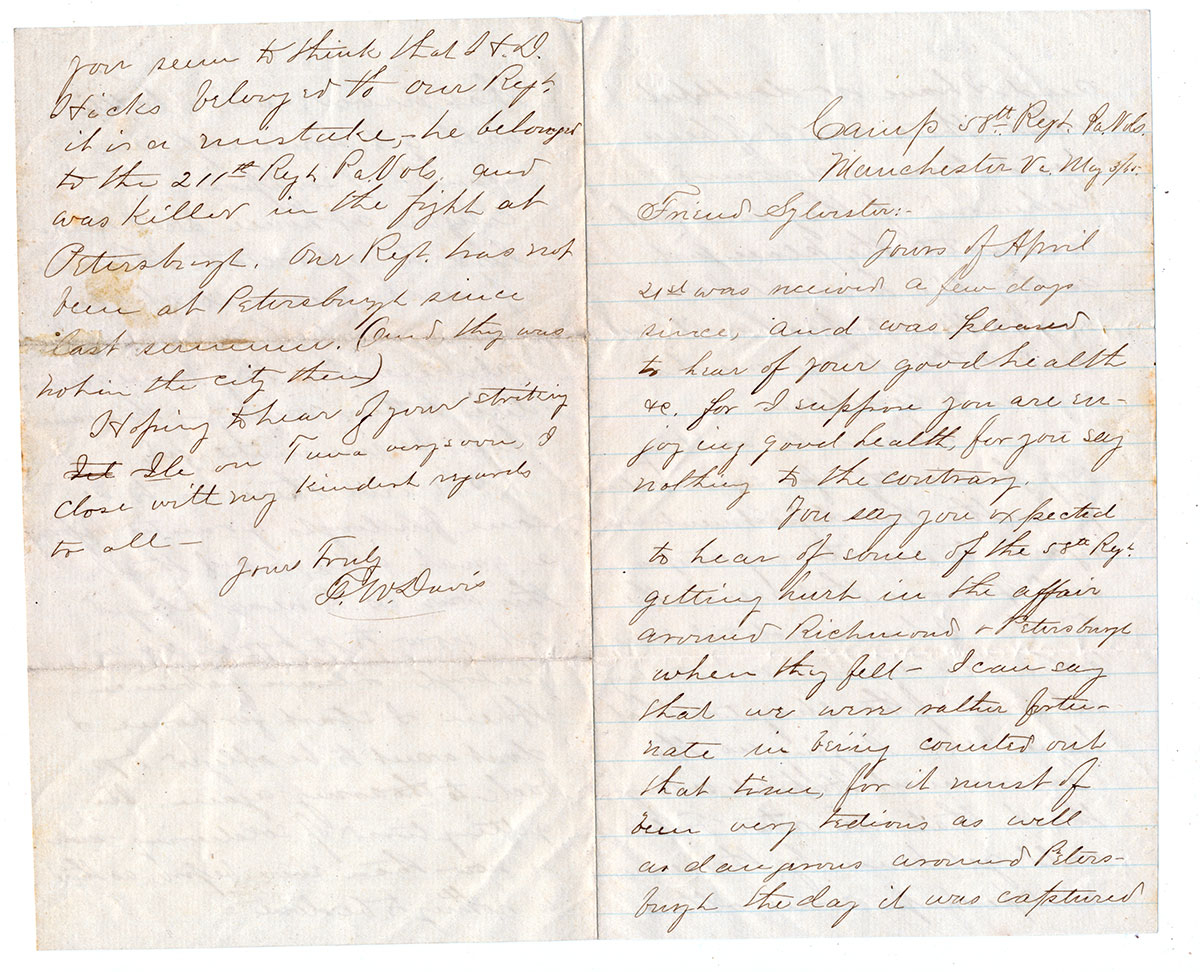 Camp 58th. Regt. Pa. Vols.
Manchester Va. May 3/65.
Friend Sylvester:-
Yours of April
21st was received a few days
since, and was pleased
to hear of your good health
&c. for I suppose you are en-
joying good health, for you say
nothing to the contrary.
You say you expected
to hear of some of the 58th Regt.
getting hurt in the affair
around Richmond & Petersburgh
when they fell - I can say
that we were rather fortu-
nate in being counted out
that time, for it must of
been very tedious as well
as dangerous around Peters-
burgh the day it was captured
you seem to think that
Hicks belonged to our Regt.
it is a mistake, - he belonged
to the 211th Regt. Pa. Vols. and
was killed in the fight at
Petersburgh. Our Regt. has not
been at Petersburgh since
last summer. (and they was
not in the city then)
Hoping to hear of your striking
Ile on Tuna very soon, I
close with my kindest regards
to all -
Yours Truly
W. Davis